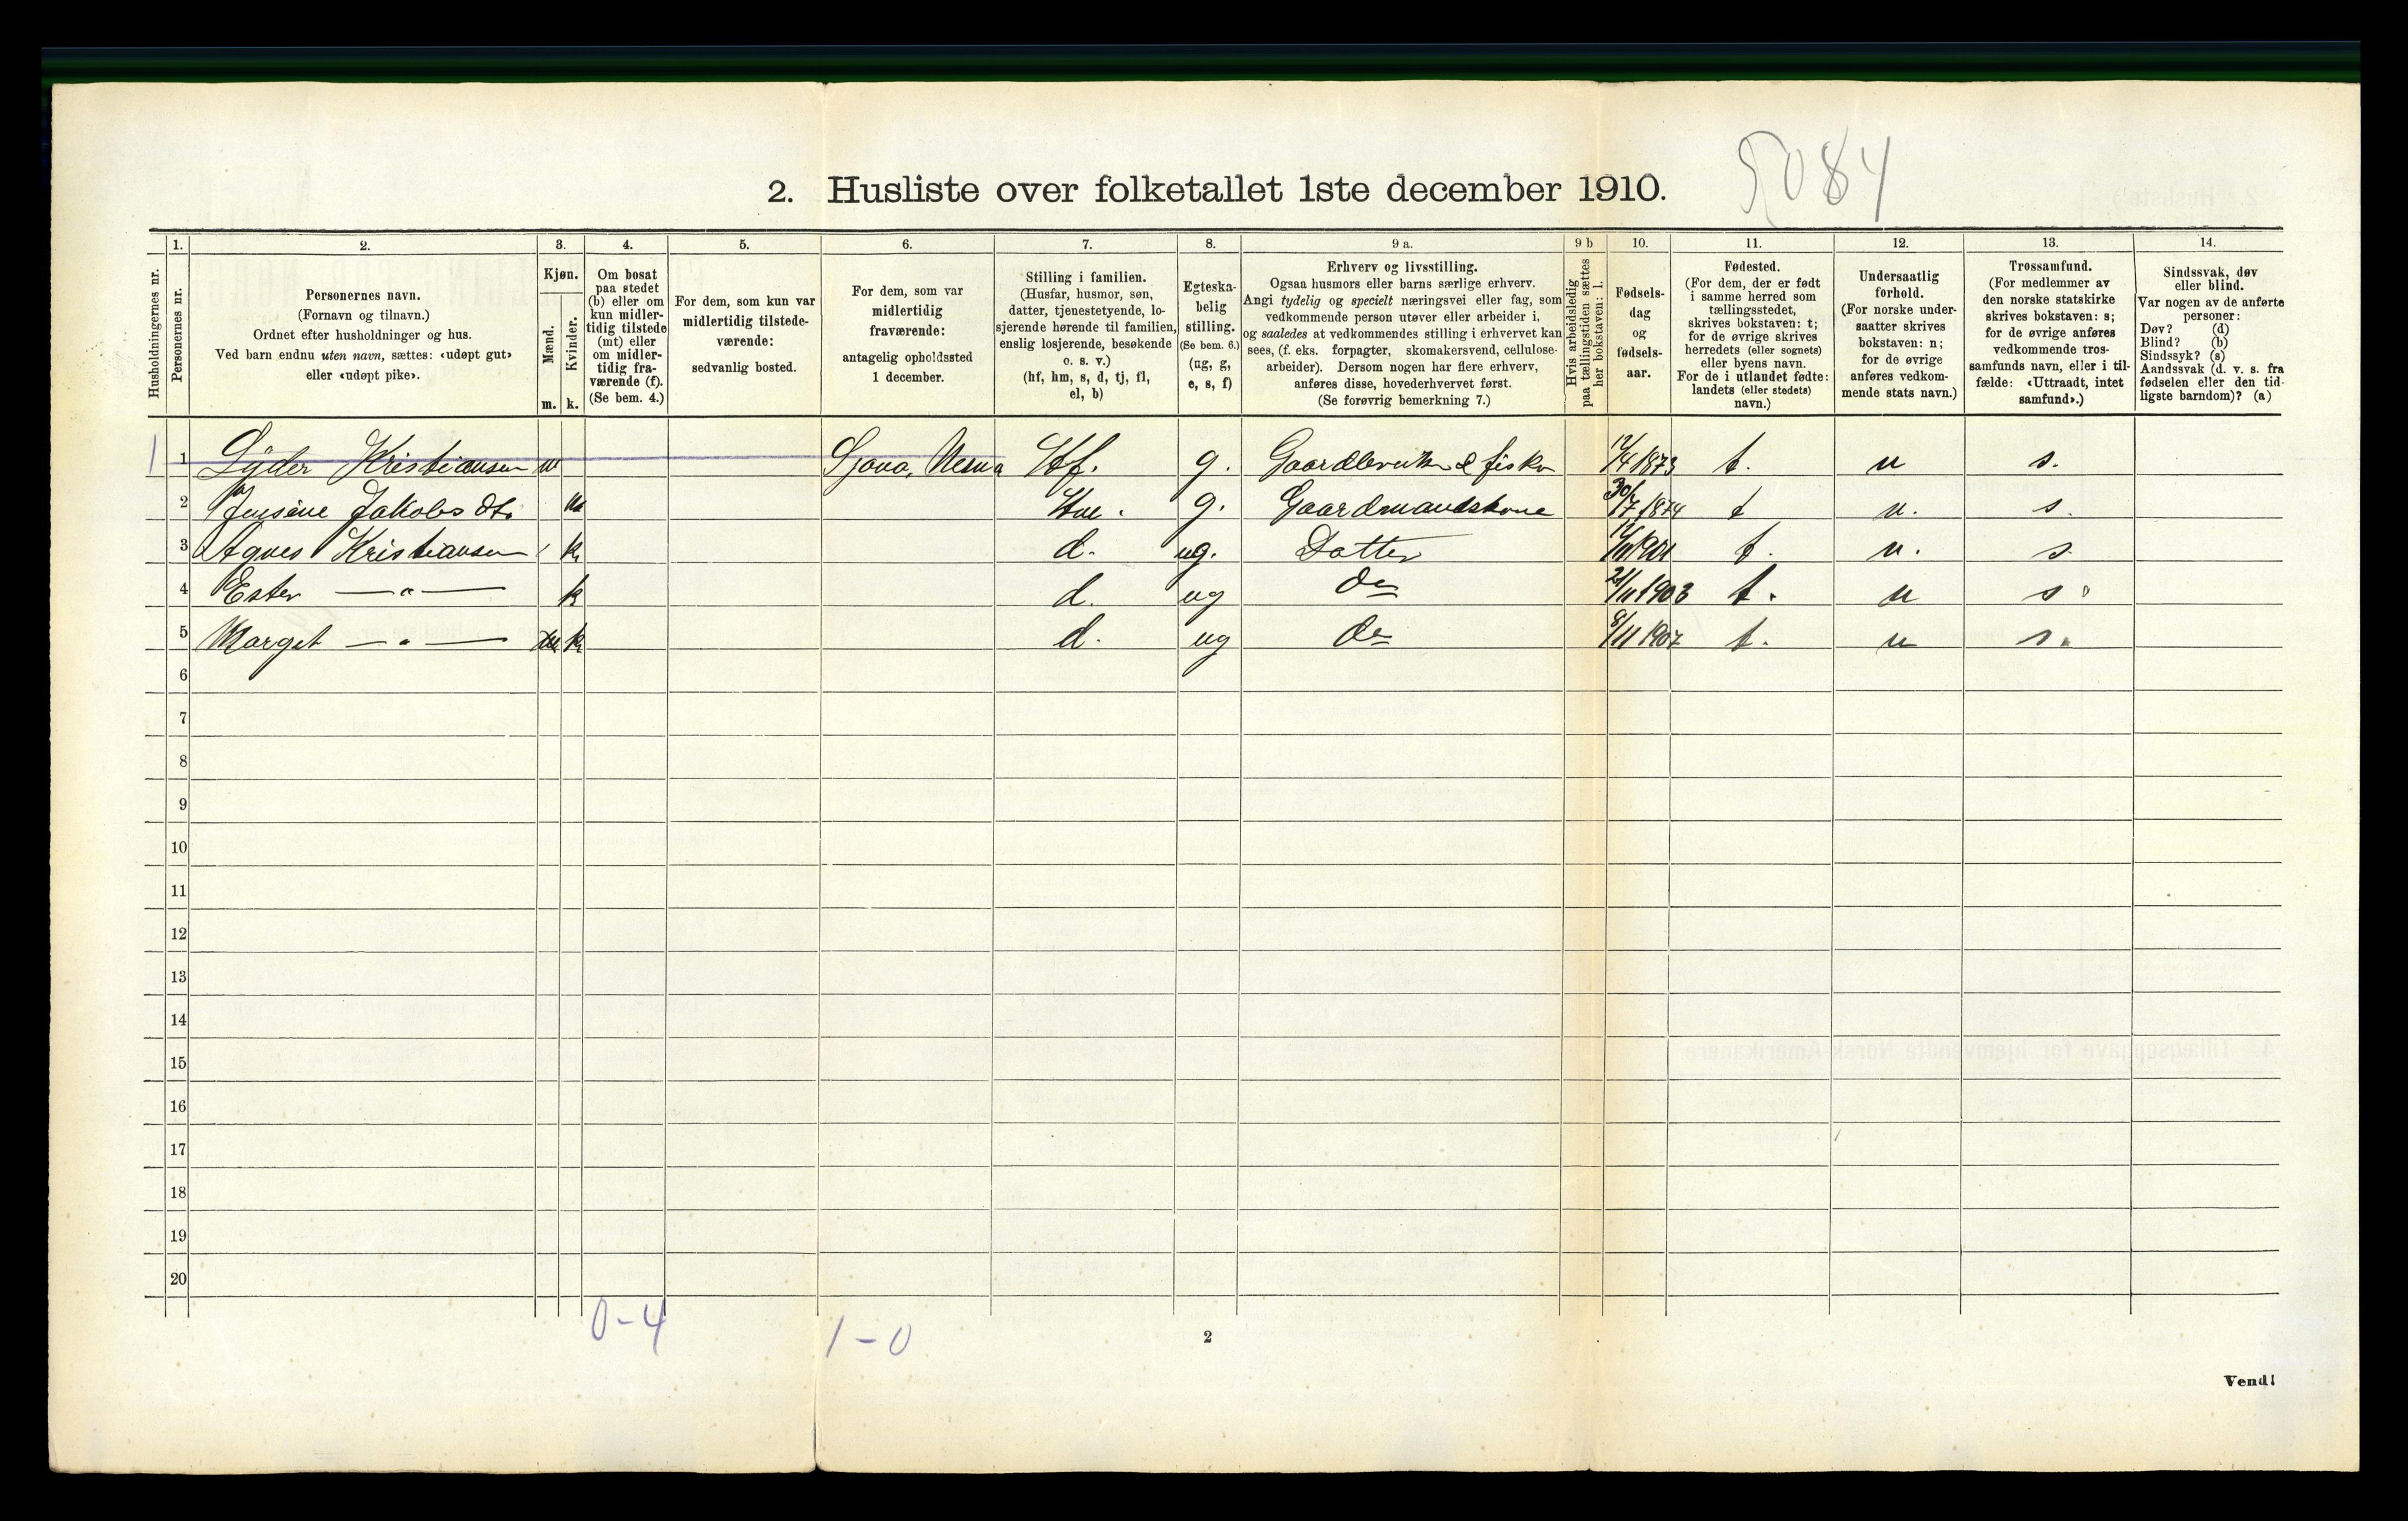 5084
2. Husliste over folketallet 1ste december 1910.
Husholdningernes nr.
1.
Personernes nr.
2.
Personernes navn.
(Fornavn og tilnavn.)
Ordnet efter husholdninger og hus.
Ved barn endnu uten navn, sættes: «udøpt gut»
eller «udøpt pike».
3.
Kjøn.
Mænd.
Kvinder.
m.
k.
4.
Om bosat
paa stedet
(b) eller om
kun midler-
tidig tilstede
(mt) eller
om midler-
tidig fra-
værende (f).
(Se bem. 4.)
5.
For dem, som kun var
midlertidig tilstede-
værende:
sedvanlig bosted.
6.
For dem, som var
midlertidig
fraværende:
antagelig opholdssted
1 december.
7.
Stilling i familien.
(Husfar, husmor, søn,
datter, tjenestetyende, lo-
sjerende hørende til familien,
enslig losjerende, besøkende
o. s. v.)
(hf, hm, s, d, tj, fl,
el, b)
8.
Egteska-
belig
stilling.
(Se bem. 6.)
(ug, g,
e, s, f)
9 a.
Erhverv og livsstilling.
Ogsaa husmors eller barns særlige erhverv.
Angi tydelig og specielt næringsvei eller fag, som
vedkommende person utøver eller arbeider i,
og saaledes at vedkommendes stilling i erhvervet kan
sees, (f. eks. forpagter, skomakersvend, cellulose-
arbeider). Dersom nogen har flere erhverv,
anføres disse, hovederhvervet først.
(Se forøvrig bemerkning 7.)
9 b
Hvis arbeidsledig
paa tællingstiden sættes
her bokstaven: l.
10.
Fødsels-
dag
og
fødsels-
aar.
11.
Fødested.
(For dem, der er født
i samme herred som
tællingsstedet,
skrives bokstaven: t;
for de øvrige skrives
herredets (eller sognets)
eller byens navn.
For de i utlandet fødte:
landets (eller stedets)
navn.)
12.
Undersaatlig
forhold.
(For norske under-
saatter skrives
bokstaven: n;
for de øvrige
anføres vedkom-
mende stats navn.)
13.
Trossamfund.
(For medlemmer av
den norske statskirke
skrives bokstaven: s;
for de øvrige anføres
vedkommende tros-
samfunds navn, eller i til-
fælde: «Uttraadt, intet
samfund».)
14.
Sindssvak, døv
eller blind.
Var nogen av de anførte
personer:
Døv? (d)
Blind? (b)
Sindssyk? (s)
Aandssvak (d. v. s. fra
fødselen eller den tid-
ligste barndom)? (a)
1 1 Lyder Kristiansen m Sjona, Nesna Hf. g. Gaardbruker & fisker 12/4 1873 t. n s.
2 Jensine Jakobsdtr k g. Gaardmandskone 30/7 1874 t n. s.
3 Agnes Kristiansen k d. ug. Datter 1901 t. n. s
4 Ester —"— k d. ug do 21/11 1903 t. n s.
5 Marget —"— k d. ug do 8/11 1907 t. n s.
6
7
8
9
10
11
12
13
14
15
16
17
18
19
20
0-4
1-0
2
Vend!